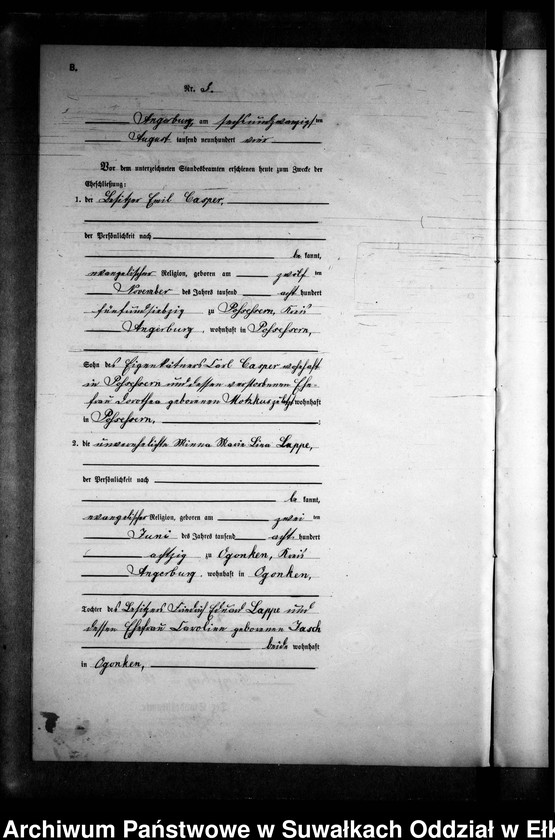 B.
Nr.
Angerburg, am sechsundzwanzigsten
August tausend neunhundert vier
Vor dem unterzeichneten Standesbeamten erschienen heute zum Zwecke der
Eheschließung:
1. der Besitzer Emil Casper,
der Persönlichkeit nach
be kannt,
evangelischer Religion, geboren am zwölf ten
November des Jahres tausend acht hundert
fünfundsiebzig zu Possessern, Kreis
Angerburg, wohnhaft in Possessern,
Sohn des Eigenkätners Carl Casper wohnhaft
in Possessern und dessen verstorbenen Ehe-
frau Dorothea geborenen Motzkus zuletzt wohnhaft
in Possessern, ;
2. die unverehelichte Minna Marie Lina Lappe,
der Persönlichkeit nach
be kannt,
evangelischer Religion, geboren am zwei ten
Juni des Jahres tausend acht hundert
achtzig zu Ogonken, Kreis
Angerburg, wohnhaft in Ogonken,
Tochter des Besitzers Friedrich Eduard Lappe und
dessen Ehefrau Caroline geborenen Jasch
beide wohnhaft
in Ogonken,
Archiwum Państwowe w Suwałkach Oddział w Ełk